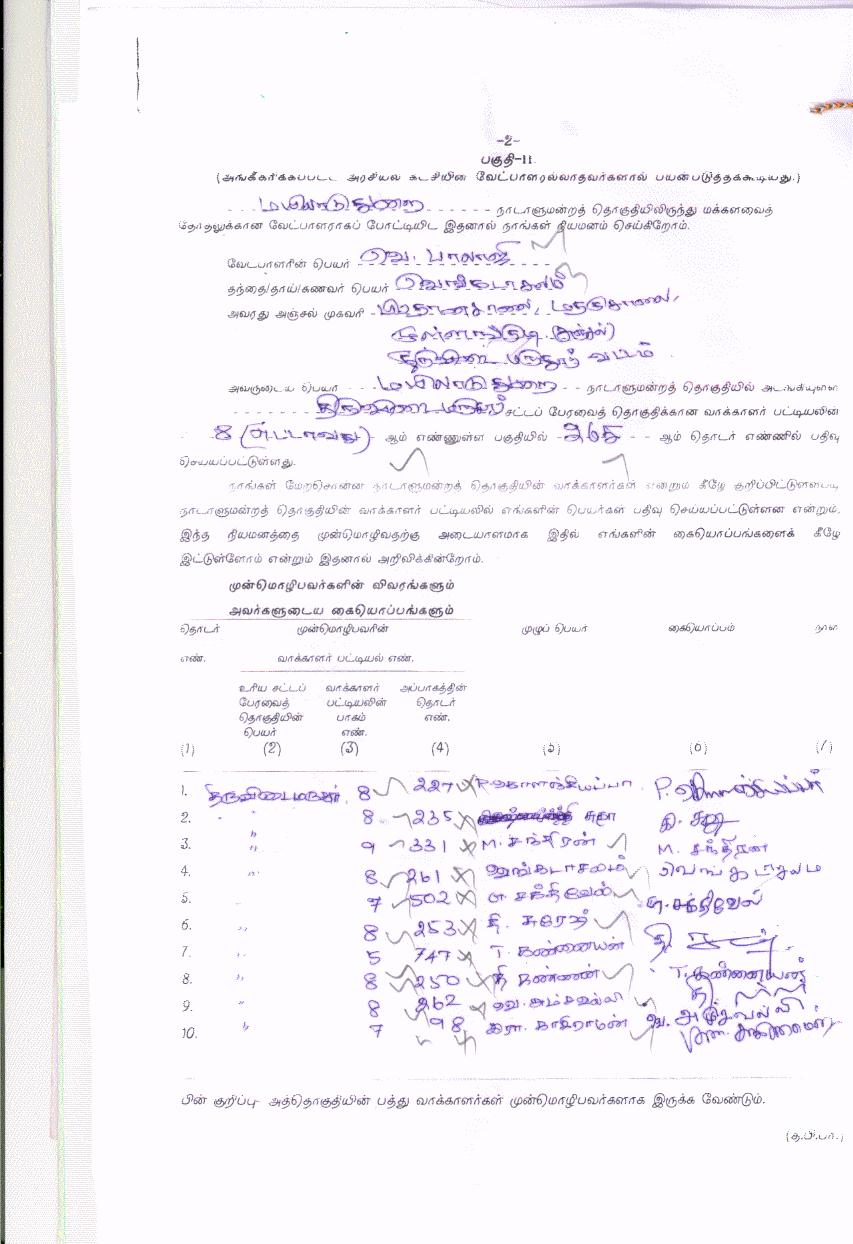 -2-
பகுதி-II.
(அங்கீகரிக்கப்பட்ட அரசியல் கட்சியின் வேட்பாளரல்லாதவர்களால் பயன்படுத்தக்கூடியது.)
மயிலாடுதுறை நாடாளுமன்றத் தொகுதியிலிருந்து மக்களவைத்
தேர்தலுக்கான வேட்பாளராகப் போட்டியிட இதனால் நாங்கள் நியமனம் செய்கிறோம்.
வேட்பாளரின் பெயர் வெ. பாலாஜி
தந்தை/தாய்/கணவர் பெயர் வெங்கடாசலம்
அவரது அஞ்சல் முகவரி
அவருடைய பெயர் மயிலாடுதுறை நாடாளுமன்றத் தொகுதியில் அடங்கியுள்ள
திருவிடைமருதூர் சட்டப் பேரவைத் தொகுதிக்கான வாக்காளர் பட்டியலின்
8 (எட்டாவது) ஆம் எண்ணுள்ள பகுதியில் ஆம் தொடர் எண்ணில் பதிவு
செய்யப்பட்டுள்ளது.
நாங்கள் மேற்சொன்ன நாடாளுமன்றத் தொகுதியின் வாக்காளர்கள் என்றும் கீழே குறிப்பிட்டுள்ளபடி
நாடாளுமன்றத் தொகுதியின் வாக்காளர் பட்டியலில் எங்களின் பெயர்கள் பதிவு செய்யப்பட்டுள்ளன என்றும்,
இந்த நியமனத்தை முன்மொழிவதற்கு அடையாளமாக இதில் எங்களின் கையொப்பங்களைக் கீழே
இட்டுள்ளோம் என்றும் இதனால் அறிவிக்கின்றோம்.
முன்மொழிபவர்களின் விவரங்களும்
அவர்களுடைய கையொப்பங்களும்
தொடர் முன்மொழிபவரின் முழுப் பெயர் கையொப்பம் நாள்
எண். வாக்காளர் பட்டியல் எண்.
உரிய சட்டப் வாக்காளர் அப்பாகத்தின்
பேரவைத் பட்டியலின் தொடர்
தொகுதியின் பாகம் எண்.
பெயர் எண்.
(1) (2) (3) (4) (5) (6) (7)
1. திருவிடைமருதூர் 8 227
2. " 8 235 சுதா
3. " 9 331 M. சந்திரன் M. சந்திரன்
4. " 8 261 வெங்கடாசலம் வெங்கடாசலம்
5. " 7 502 சக்திவேல் சக்திவேல்
6. " 8 253 தி. சுரேஷ்
7. " 5 747 T. கண்ணையன் T. கண்ணையன்
8. " 8 250 தி கண்ணன்
9. " 8 262 வெ. அம்சவல்லி வெ. அம்சவல்லி
10. " 7 98 காசிராமன்
பின் குறிப்பு- அத்தொகுதியின் பத்து வாக்காளர்கள் முன்மொழிபவர்களாக இருக்க வேண்டும்.
(த.பி.பா.)